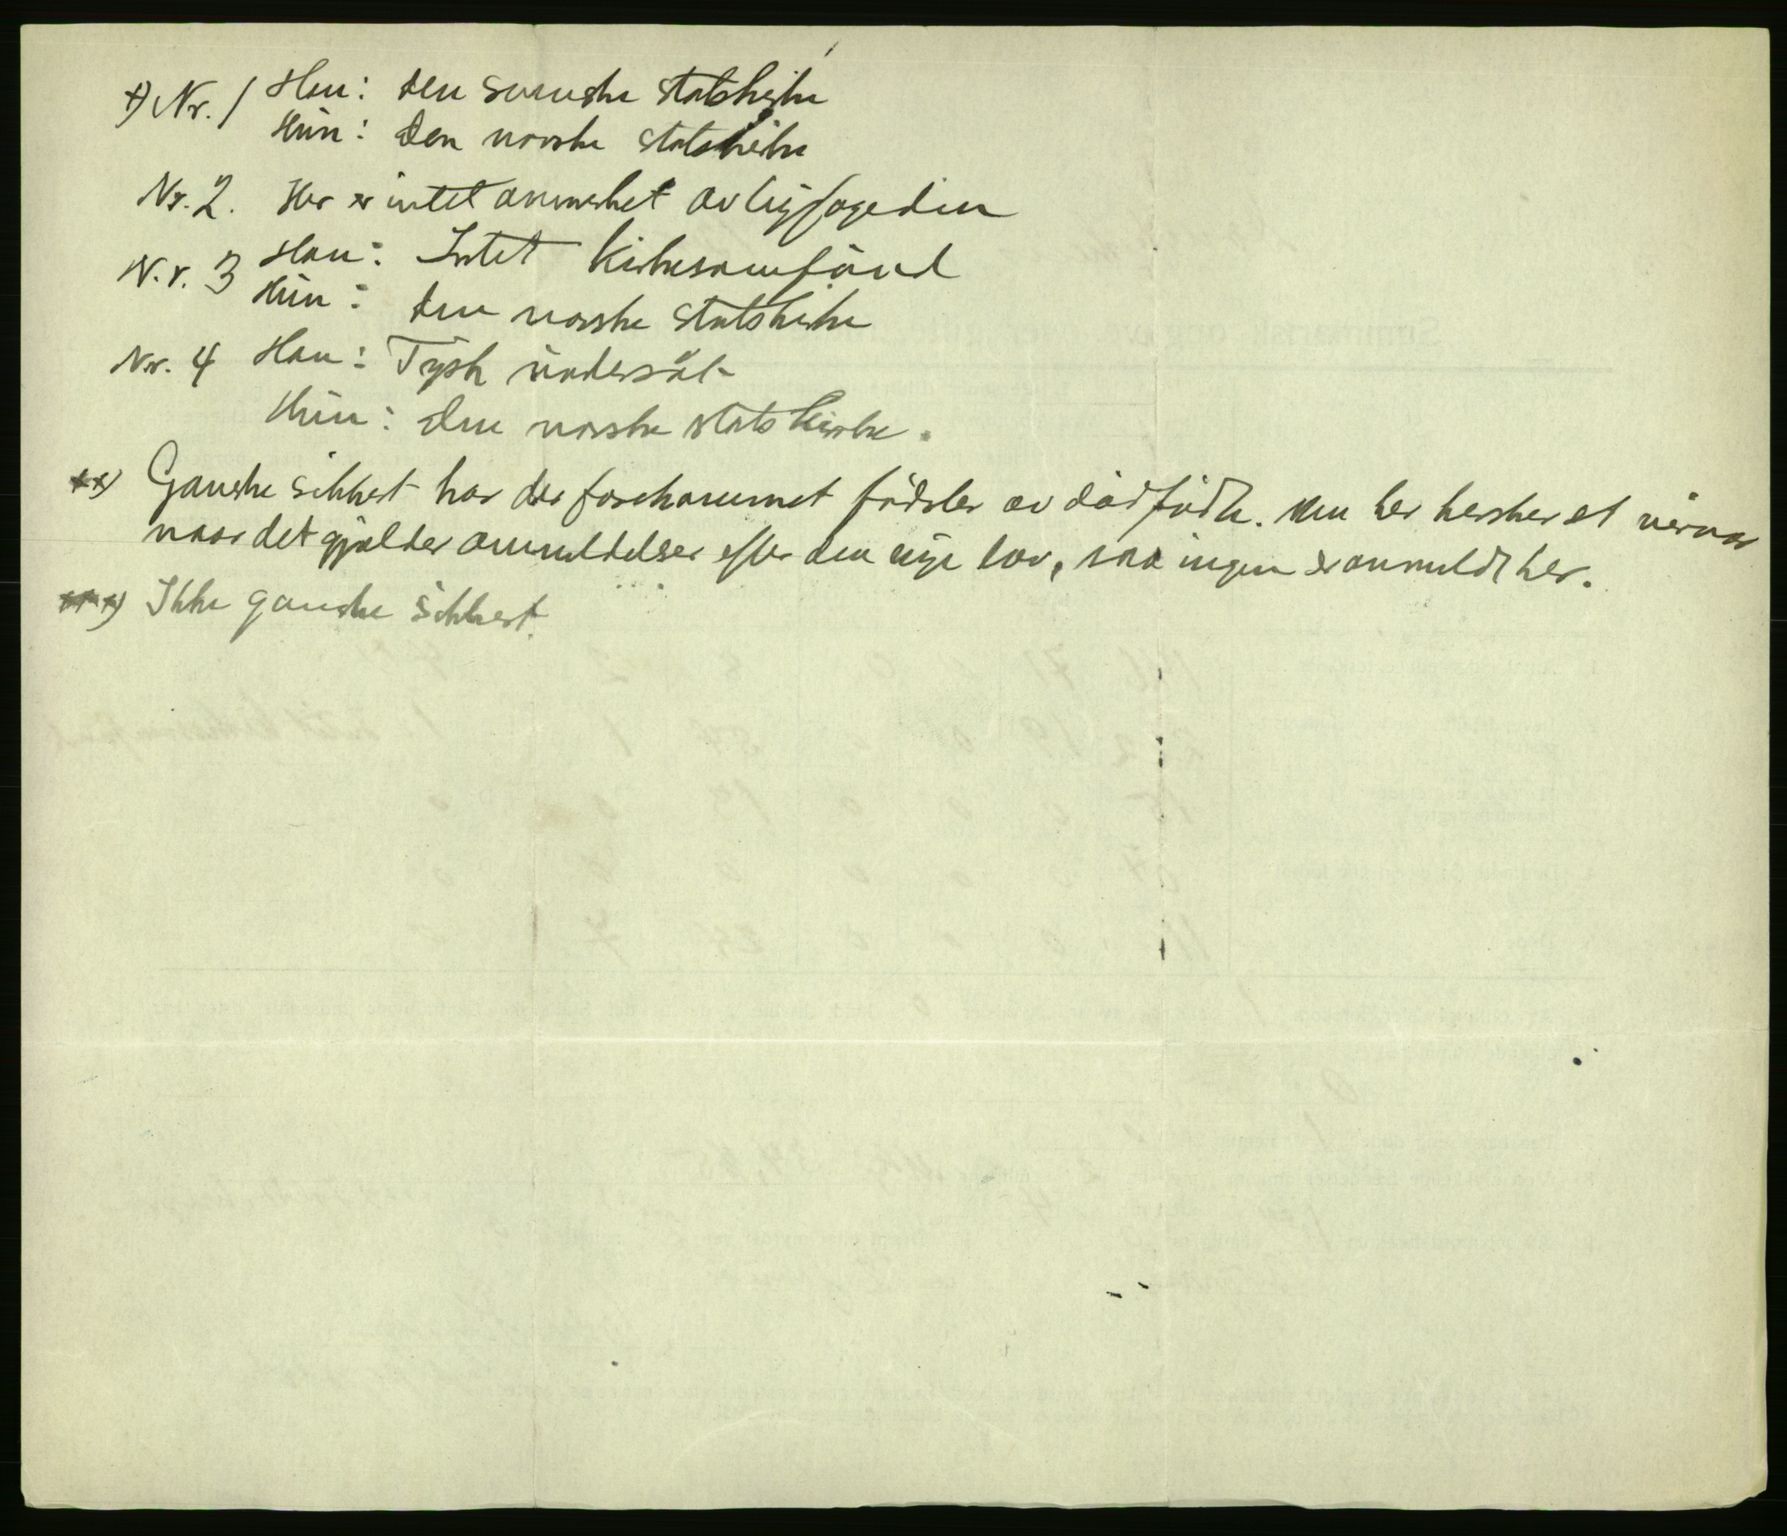 x) Nr. 1 Han: den svenske statskirke
Hun: den norske statskirke
Nr. 2. Her er intet anmerket av byfogeden
Nr. 3 Han: Intet kirkesamfund
Hun: den norske statskirke
Nr. 4 Han: Tysk undersåt
Hun: den norske statskirke.
xx) Ganske sikkert har der forekommet fødsler av dødfødte. Men her hersker et
naar det gjælder anmeldelser efter den nye lov, saa ingen er anmeldt her.
xxx) Ikke ganske sikkert.